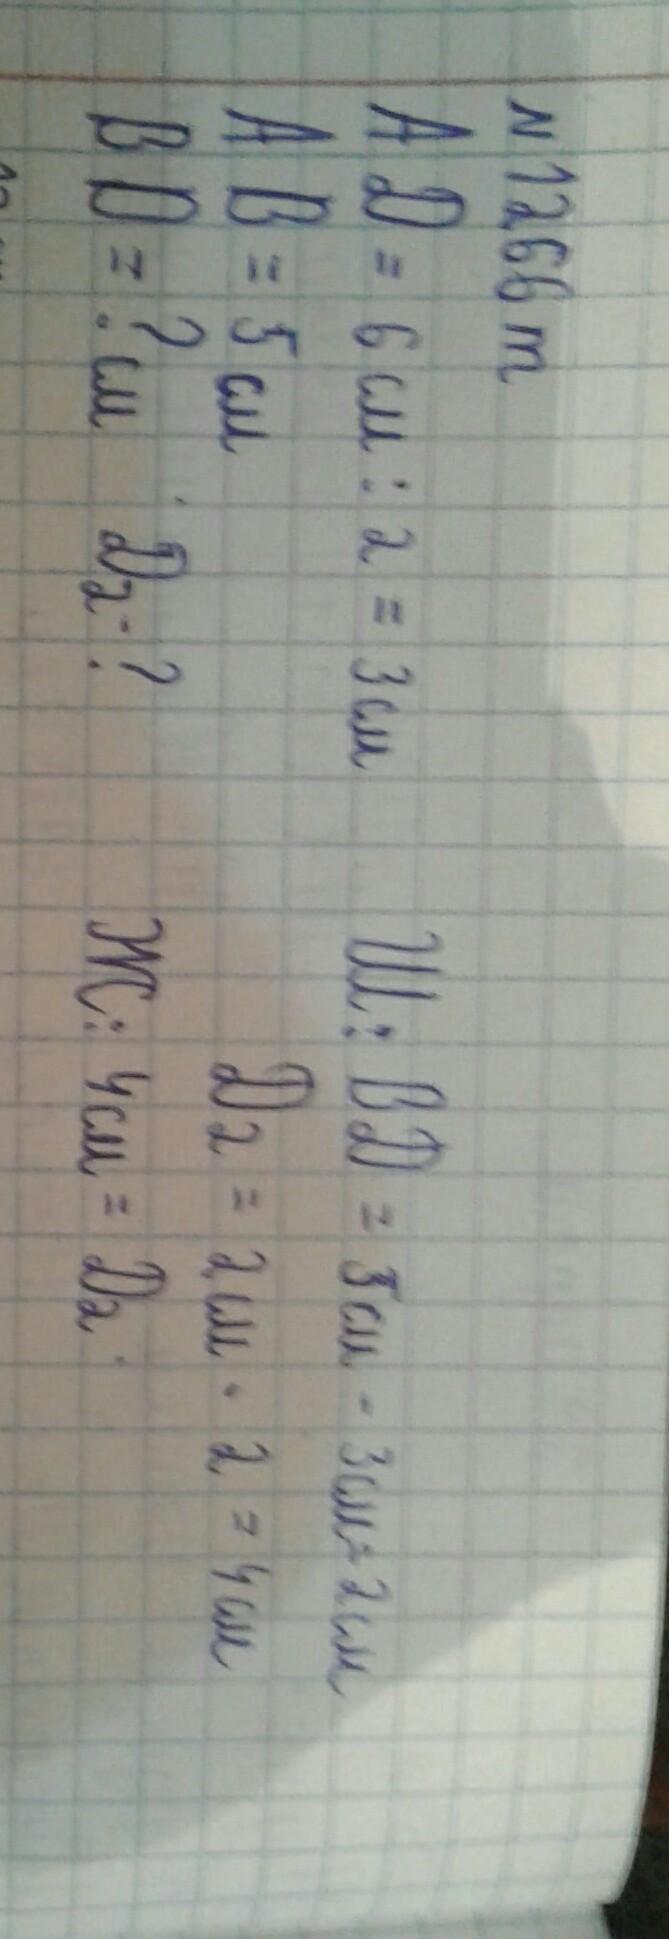 N 1266 m
AD = 6 см : 2 = 3 см
AB = 5 см
BD = ? см D₂ - ?
Ш: BD = 5 см - 3 см = 2 см
D₂ = 2 см · 2 = 4 см
Ж: 4 см = D₂